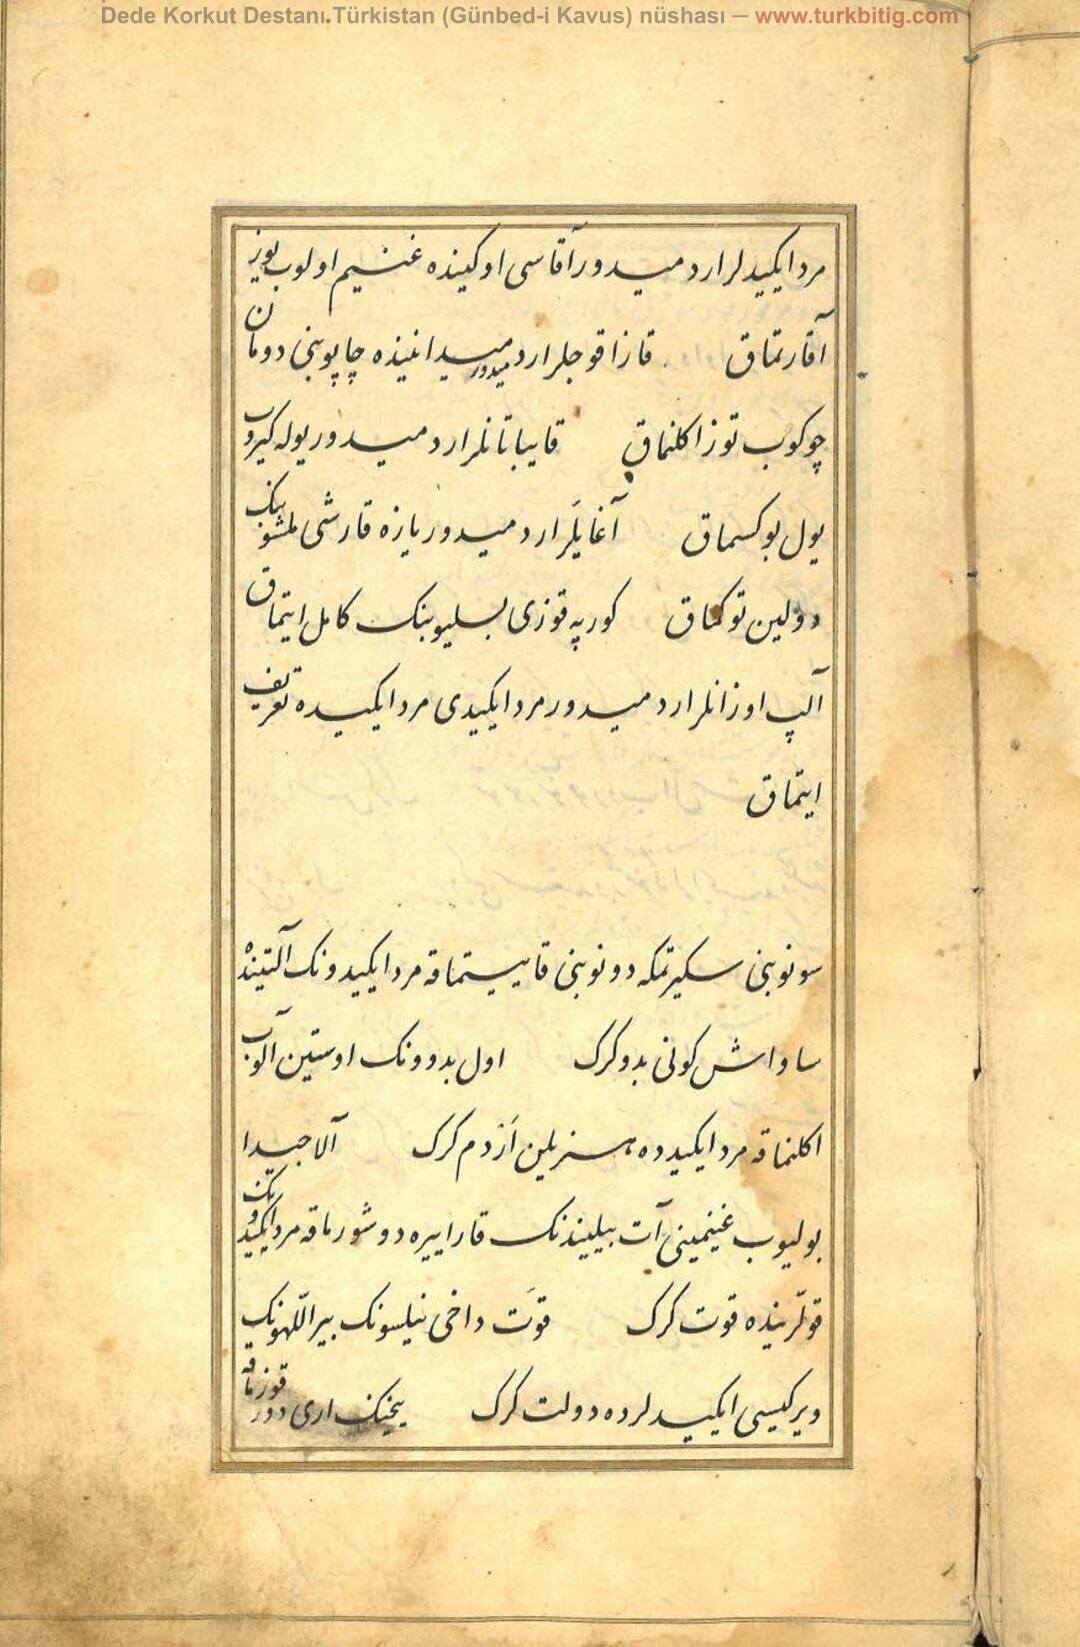 Dede Korkut Destanı.Türkistan (Günbed-i Kavus) nüshası — www.turkbitig.com
مرد ایکیدلر اردمیدور آقاسی اوکینده غنیم اولوب یوز
آقارتماق قازاقوجلر اردمیدور میدانینده چاپوبنی دومان
چوکوب توز اکلنماق قایباتانلر اردمیدور یوله کیروب
یول بوکسماق آغایلر اردمیدور یازه قارشی
دولین توکماق کورپه قوزی بسلیوبنک کامل ایتماق
آلپ اوزانلر اردمیدور مرد ایکیدی مرد ایکیده تعریف
ایتماق
سونوبنی سکیرتمکه دونوبنی قاییتماقه مرد ایکیدونک آلتینده
ساواش کونی بدو کرک اول بدوونک اوستین آلوب
اکلنماقه مرد ایکیدده هنریلین اَزدم کرک آلا جیدا
بولیوب غنیمینی آت بیلیندنک قارا ییره دوشورماقه مرد ایکیدونک
قولّرینده قوت کرک قوَت داخی نیلسونک بیر اللّهونک
ویرکیسی ایکیدلرده دولت کرک یخینک اری دور قوزماقه